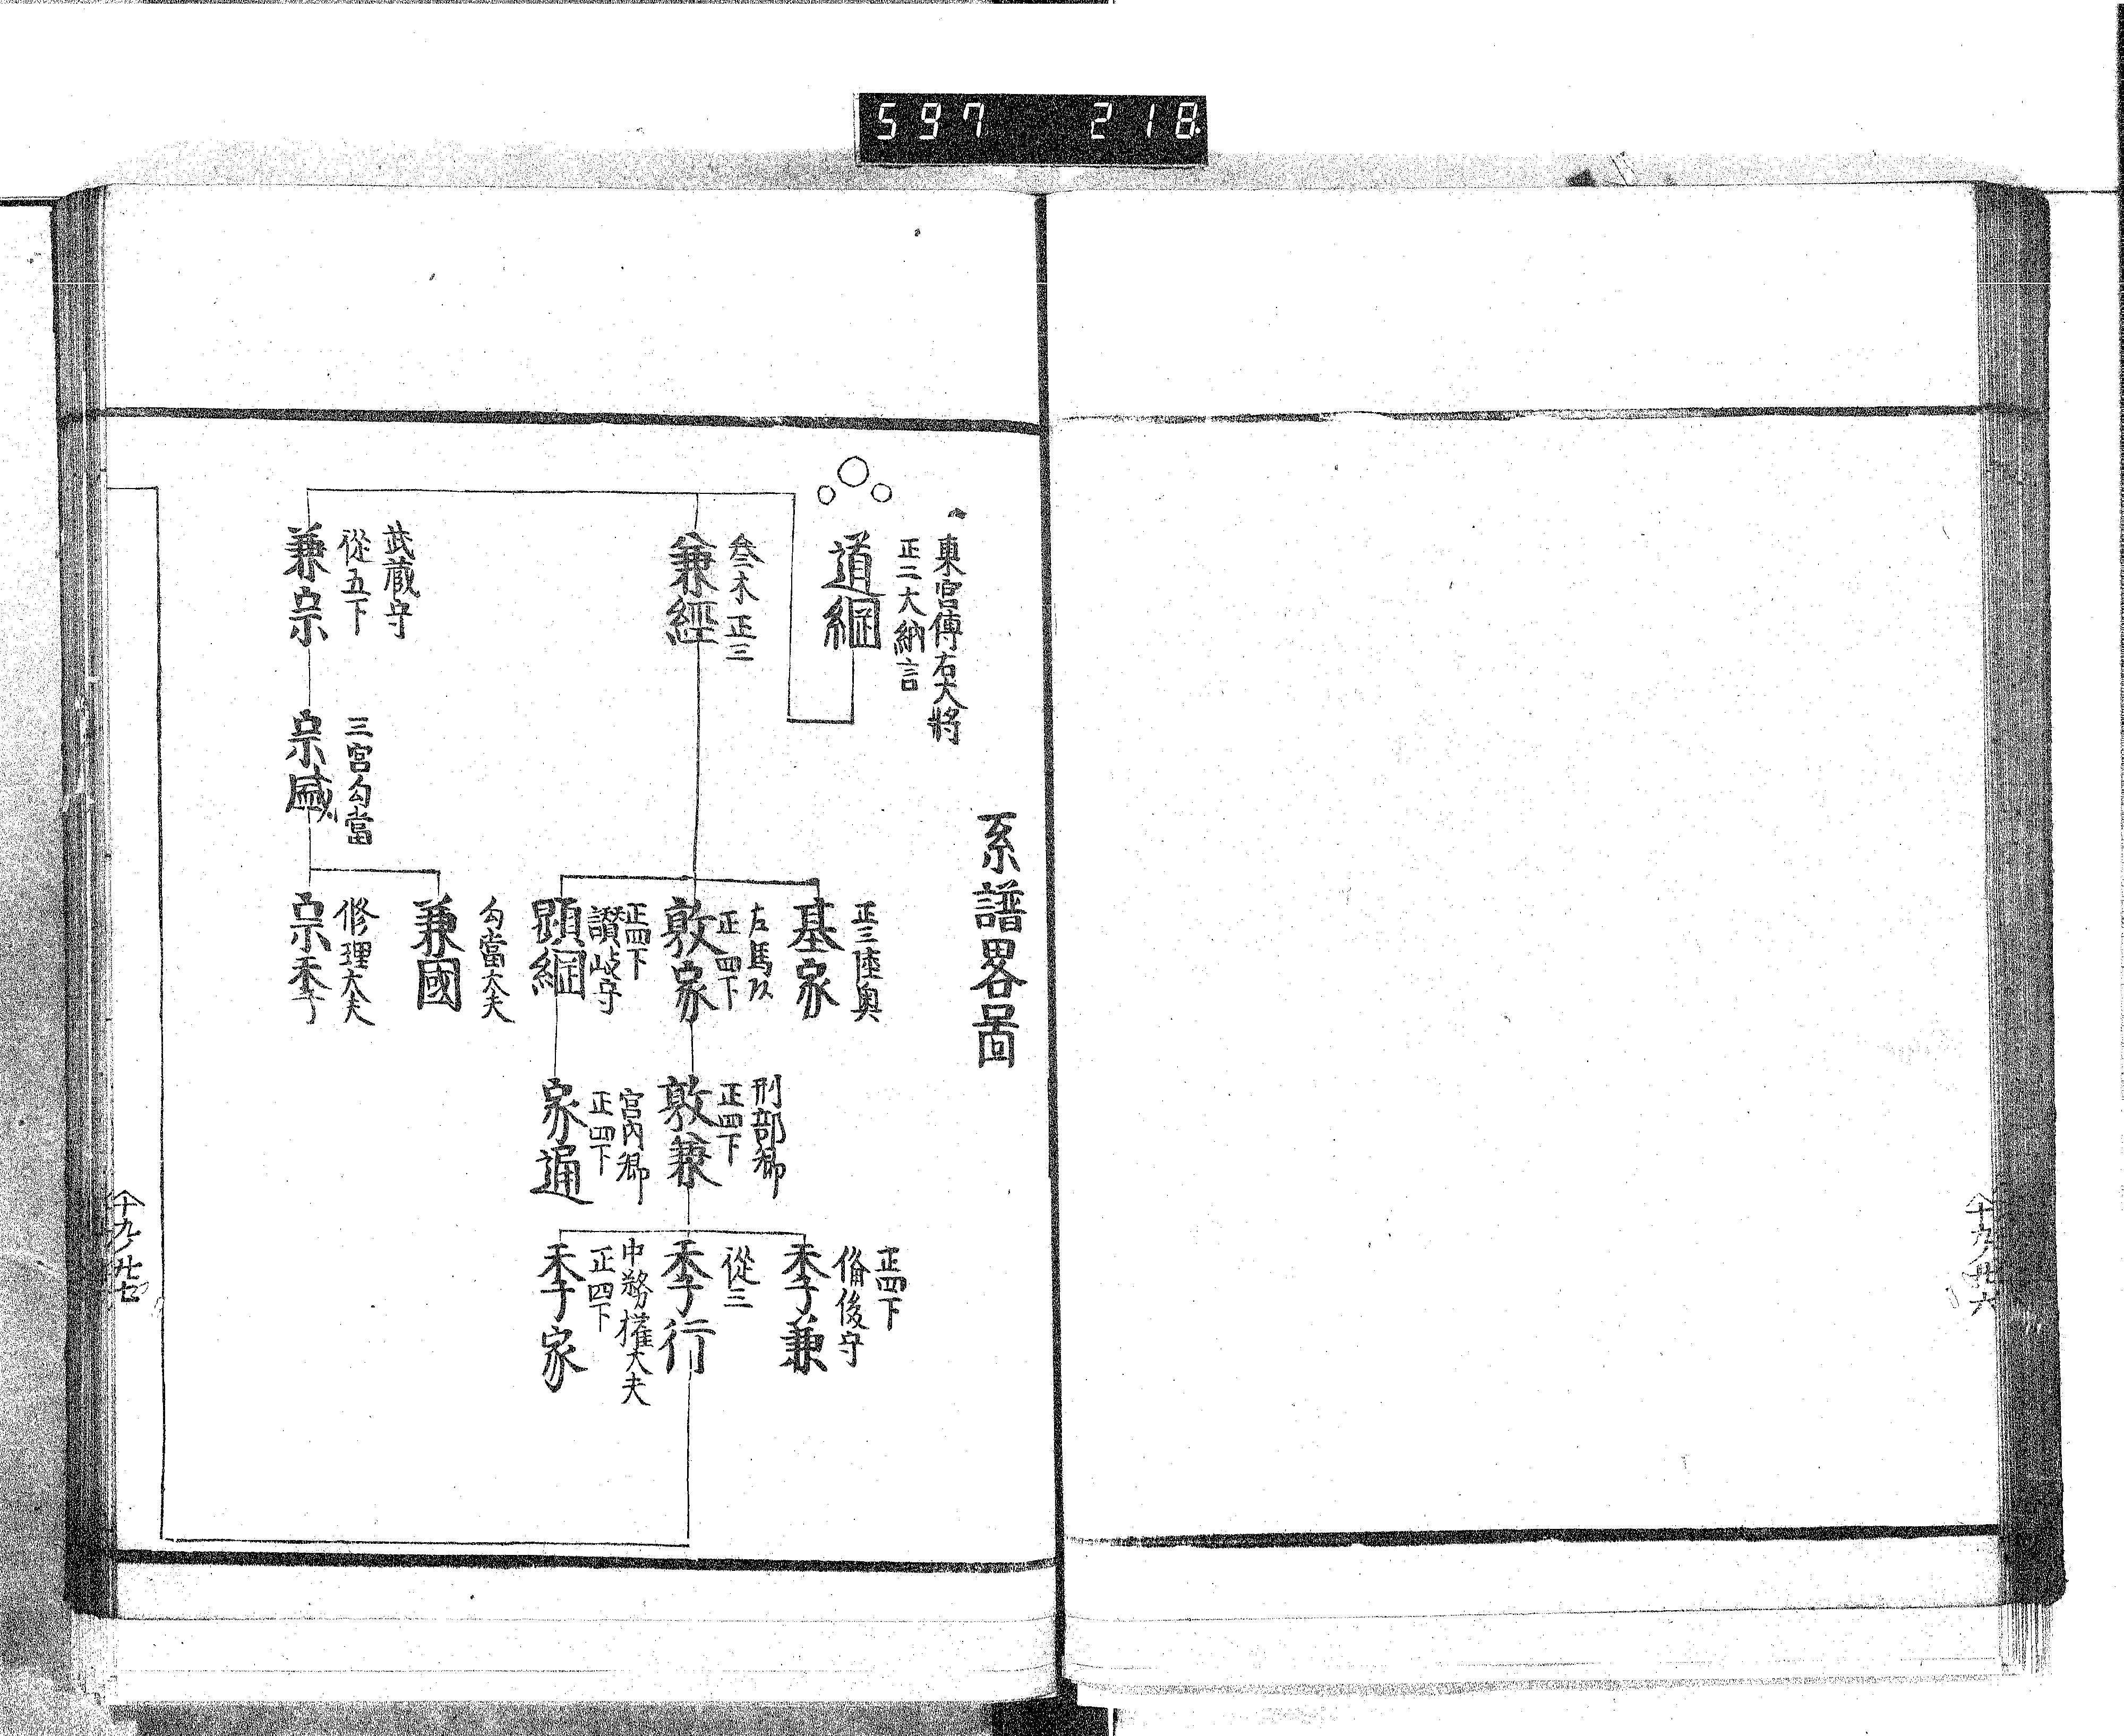 597 218
十九ノ廿六
系譜畧啚
東宮傅右大将
正二大納言
道綱
叄木正三
兼經
武蔵守
從五下
兼宗
三宮勾當
宗
正三陸奥
基家
左馬
正四下
敦家
正四下
讃岐守
顕綱
勾當大夫
兼國
修理大夫
宗季
刑部卿
正四下
敦兼
宮内卿
正四下
家通
正四下
俻後守
季兼
從三
季行
中務權大夫
正四下
季家
十九ノ廿七